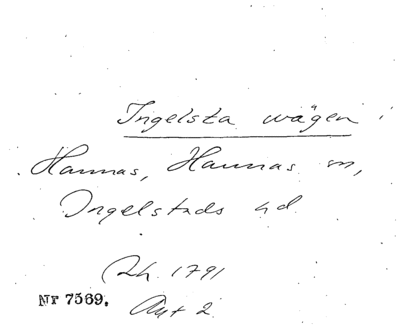 Ingelsta vägen i
Hannas, Hannas sn,
Ingelstads hd.
Lh. 1791
Nr 7569. Akt 2